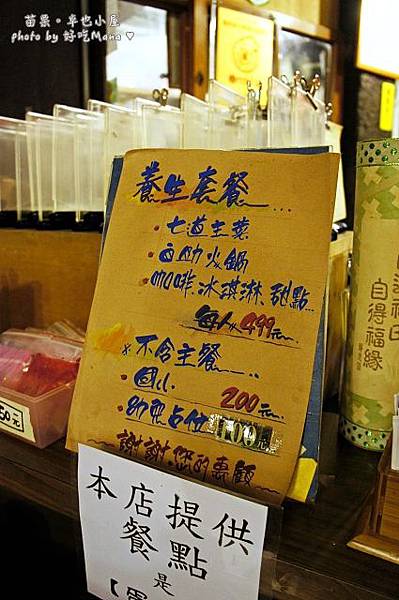 苗栗。卓也小屋
photo by 好吃Mana ♥
養生套餐...
•七道主菜
•自助火鍋
•咖啡.冰淇淋.甜點...
每人x499元
※不含主餐...
•國小 200元
•幼兒占位 100元
謝謝.您的惠顧
本店提供
餐點
是
自得福緣
50元